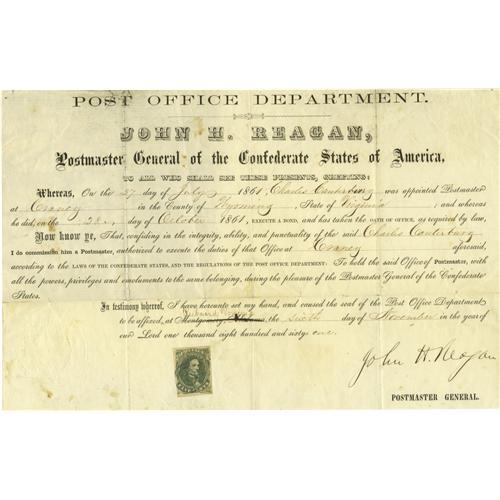 POST OFFICE DEPARTMENT.
JOHN H. REAGAN,
Postmaster General of the Confederate States of America,
TO ALL WHO SHALL SEE THESE PRESENTS, GREETING:
Whereas, On the 27 day of July 1861, Charles Canterbury was appointed Postmaster
at Craney in the County of Wyoming, State of Virginia; and whereas
he did, on the day of October 1861, EXECUTE A BOND, and has taken the OATH OF OFFICE, as required by law,
Now know ye, That, confiding in the integrity, ability, and punctuality of the said Charles Canterbury
I do commission him a Postmaster, authorized to execute the duties of that Office at Craney aforesaid,
according to the LAWS OF THE CONFEDERATE STATES, AND THE REGULATIONS OF THE POST OFFICE DEPARTMENT: To hold the said Office of Postmaster, with
all the powers, privileges and emoluments to the same belonging, during the pleasure of the Postmaster General of the Confederate
States.
In testimony whereof, I have hereunto set my hand, and caused the seal of the Post Office Department
to be affixed, at Montgomery, the sixth day of November in the year of
our Lord one thousand eight hundred and sixty one.
John H. Reagan
POSTMASTER GENERAL.